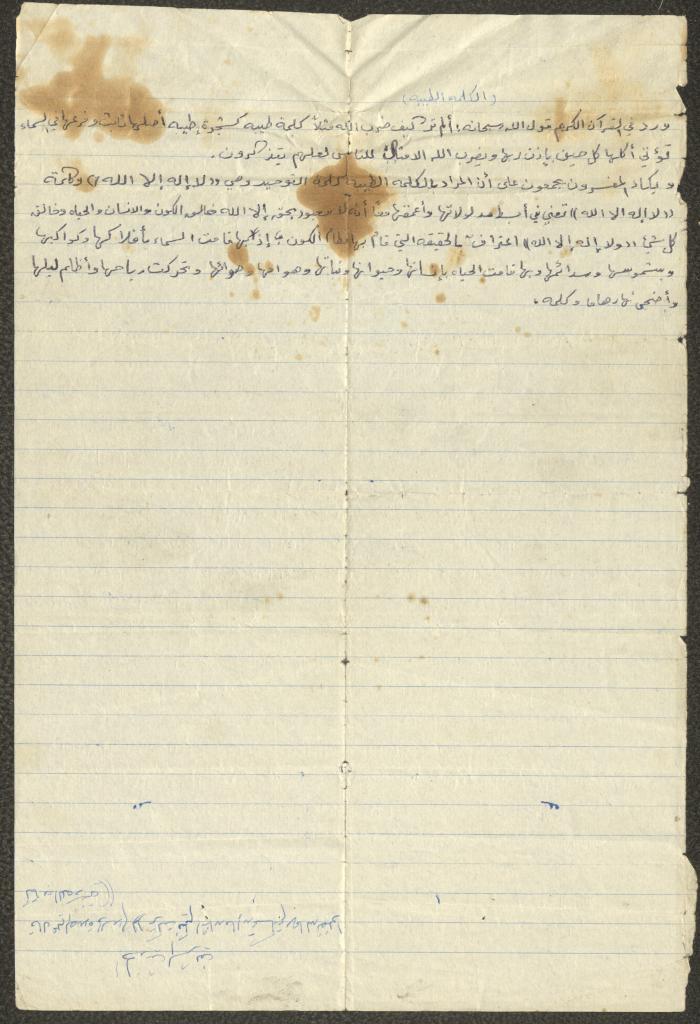 (الكلمة الطيبة)
ورد في القرآن الكريم قول الله سبحانه: ألم تر كيف ضرب الله مثلاً كلمة طيبه كشجرة طيبه أصلها ثابت وفرعها في السماء
تؤتي أكلها كل حين بإذن ربها ويضرب الله الامثال للناس لعلهم يتذكرون.
و يكاد المفسرون يجمعون على أن المراد بالكلمه الطيبه كلمة التوحيد وهي ((لا إله إلا الله)) وكلمة
((لا إله الا الله)) تعني في أبسط مدلولاتها وأعمقها معاً أنه لا معبود بحق إلا الله خالق الكون والانسان والحياه وخالق
كل شيء ((ولا إله إلا الله)) اعتراف بالحقيقه التي قام بها نظام الكون إذ بها قامت السماء بأفلاكها وكواكبها
وشموسها وسدائمها وبها قامت الحياه بإنسانها وحيوانها ونباتها وهوامها وتحركت رياحها وأظلم ليلها
وأضحى نهارها وكلمه.